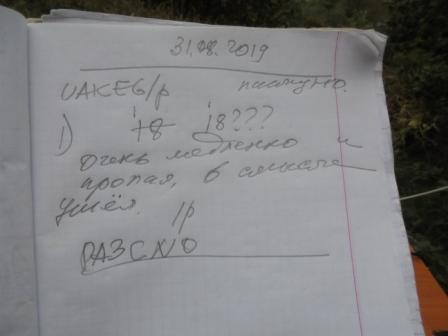 31.08.2019
UA1CEG/p пасмурно.
1) +8 18???
очень медленно и
пропал, в смысле
ушёл.
/p
РА3СNО